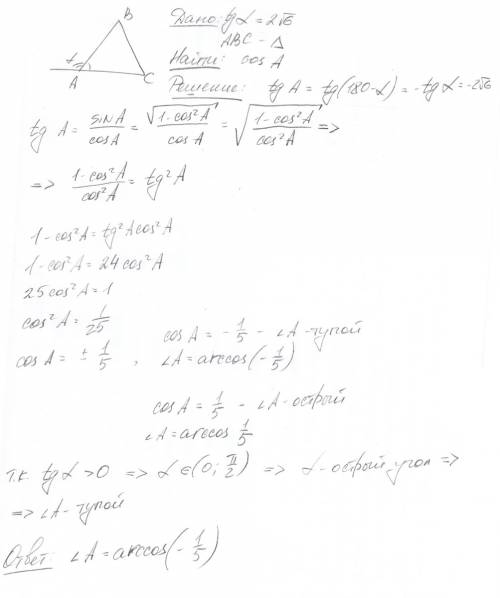 B
A
C
Дано: tg α = 2√6
ABC - Δ
Найти: cos A
Решение: tg A = tg(180-α) = -tg α = -2√6
tg A = sin A / cos A = √(1-cos²A) / cos A = √((1-cos²A) / cos²A) =>
=> (1-cos²A) / cos²A = tg²A
1-cos²A = tg²A cos²A
1-cos²A = 24 cos²A
25 cos²A = 1
cos²A = 1/25
cos A = ± 1/5 ,
cos A = -1/5 - ∠A - тупой
∠A = arccos(-1/5)
cos A = 1/5 - ∠A - острый
∠A = arccos 1/5
т.к. tg α > 0 => α ∈ (0; π/2) => α - острый угол =>
=> ∠A - тупой
Ответ: ∠A = arccos(-1/5)